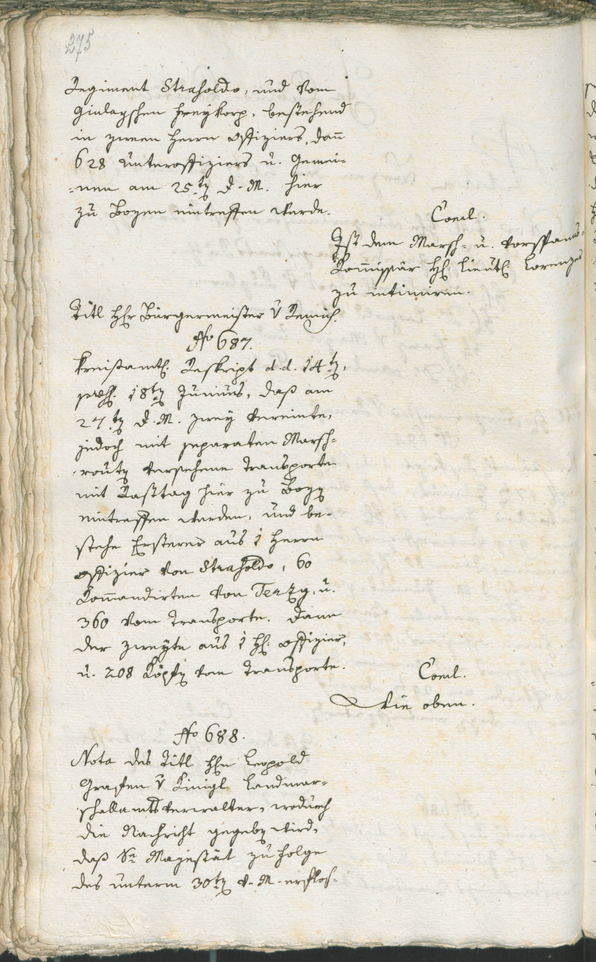 275
Regiment Straßoldo, und vom
Giulayschen Freykorp, bestehend
in zween Herrn Offiziers, dan̄
628 Unteroffiziers u. Gemei-
nen am 25.ten d. M. hier
zu Bozen eintreffen werde.
Concl.
Ist dem Marsch- u. Vorspans-
Kom̄issär H. Lieut. Lorenz
zu intimiren.
Titl Hr. Bürgermeister v
No 687.
Kreisamtl. Reskript d. d. 14ten,
18ten Junius, daß am
27.ten d. M. zwey vereinte,
jedoch mit separaten Marsch-
routen versehene Transporte
mit Rasttag hier zu Bozen
eintreffen werden, und be-
stehe Ersterer aus 1 Herrn
Offizier von Straßoldo, 60
Kom̄andirten von Terzy, u.
360 vom Transporte. Dann
der zweyte aus 1 H. Offizier,
u. 208 Köpfen vom Transporte.
Concl.
Wie oben.
No 688.
Nota des Titl Hrn Leopold
Grafen v Künigl Landmar-
schallamtsverwalter, wodurch
die Nachricht gegeben wird,
daß Se Majestät zufolge
des unterm 30ten v. M. erfloß-